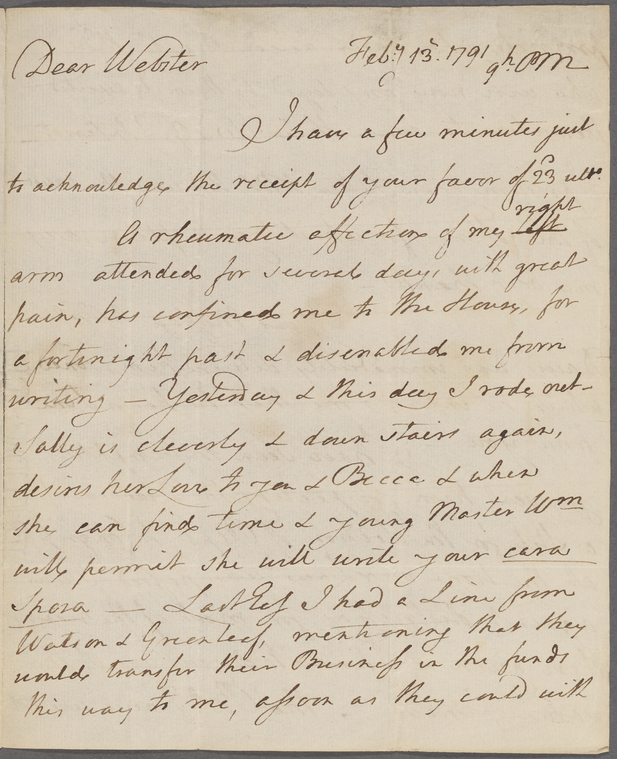 Dear Webster
Feb.y 13th. 1791 9h. PM
I have a few minutes just
to acknowledge the receipt of your favor of 23 ulto.
right
A rheumatic affection of my left
arm attended for several days with great
pain, has confined me to the House, for
a fortinight past & disenabled me from
writing — Yesterday & this day I rode out—
Sally is cleverly & down stairs again,
desires her Love to you & Becca & when
she can find time & young Master Wm
will permit she will write your cara
Sposa — Last I had a Line from
Watson & Greenleaf, mentioning that they
would transfer their Business in the funds
this way to me, assoon as they could with